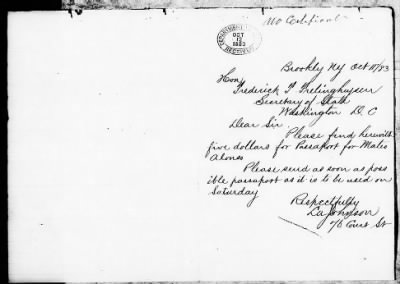 No Certificate
DEPARTMENT
OCT
12
1883
RECEIVED
Brookly Ny Oct 11/83
Hon
Frederick T Frelinghuysen
Secretary of State
Washington D. C
Dear Sir
Please find herewith
five dollars for Passaport for Mates
Alones
Please send as soon as poss
ible passaport as it is to be used on
Saturday
Respectfully
Johnson
76 Court St